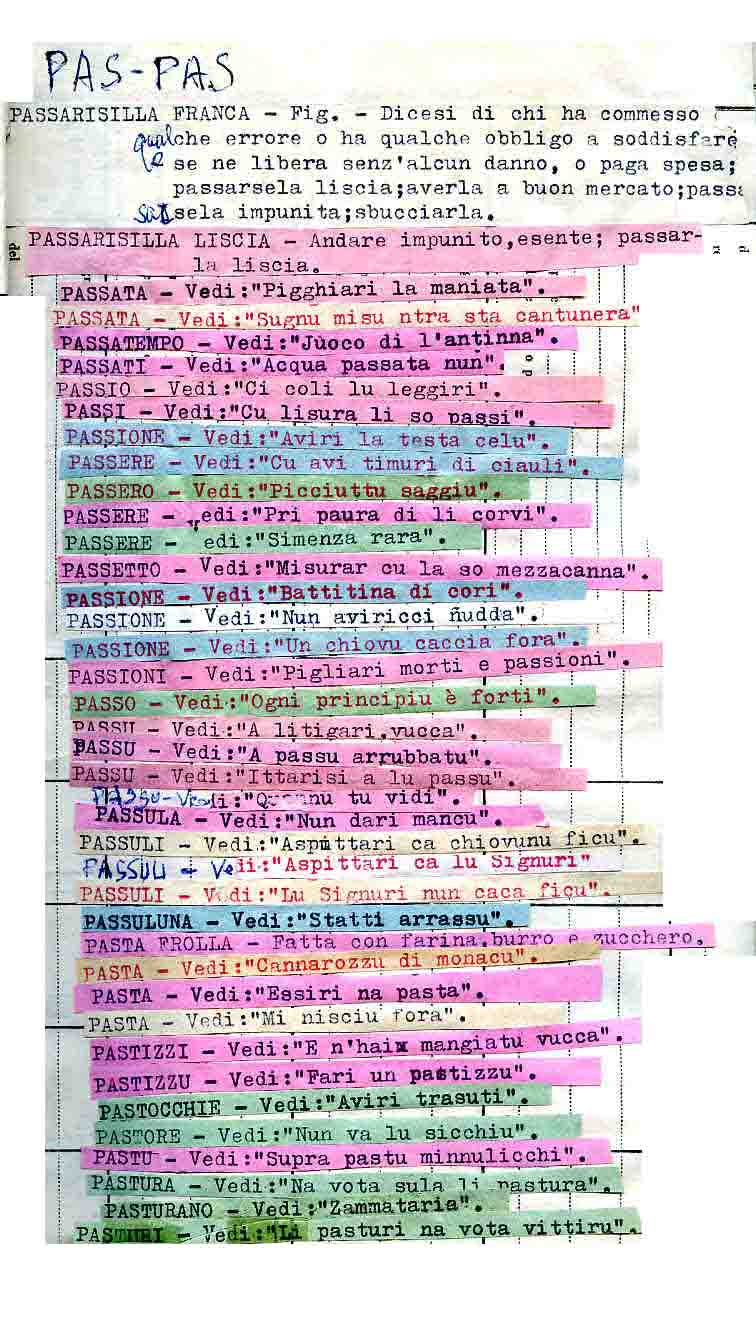 PAS-PAS
PASSARISILLA FRANCA - Fig. - Dicesi di chi ha commesso
qualche errore o ha qualche obbligo a soddisfare
e se ne libera senz'alcun danno, o paga spesa;
passarsela liscia;averla a buon mercato;passa
sela impunita;sbucciarla.
del PASSARISILLA LISCIA - Andare impunito,esente; passar-
la liscia.
PASSATA - Vedi:"Pigghiari la maniata".
PASSATA - Vedi:"Sugnu misu ntra sta cantunera"
PASSATEMPO - Vedi:"Juoco di l'antinna".
PASSATI - Vedi:"Acqua passata nun".
PASSIO - Vedi:"Ci coli lu leggiri".
PASSI - Vedi:"Cu lisura li so passi".
PASSIONE - Vedi:"Aviri la testa celu".
PASSERE - Vedi:"Cu avi timuri di ciauli".
PASSERO - Vedi:"Picciuttu saggiu".
PASSERE - vedi:"Pri paura di li corvi".
PASSERE - edi:"Simenza rara".
PASSETTO - Vedi:"Misurar cu la so mezzacanna".
PASSIONE - Vedi:"Battitina di cori".
PASSIONE - Vedi:"Nun aviricci nudda".
PASSIONE - Vedi:"Un chiovu caccia fora".
PASSIONI - Vedi:"Pigliari morti e passioni".
PASSO - Vedi:"Ogni principiu è forti".
PASSU - Vedi:"A litigari.vucca".
PASSU - Vedi:"A passu arrubbatu".
PASSU - Vedi:"Ittarisi a lu passu".
PASSU-Vedi:"Quannu tu vidi".
PASSULA - Vedi:"Nun dari mancu".
PASSULI - Vedi:"Aspittari ca chiovunu ficu".
PASSULI - Vedi:"Aspittari ca lu Signuri"
PASSULI - Vedi:"Lu Signuri nun caca ficu".
PASSULUNA - Vedi:"Statti arrassu".
PASTA FROLLA - Fatta con farina.burro e zucchero.
PASTA - Vedi:"Cannarozzu di monacu".
PASTA - Vedi:"Essiri na pasta".
PASTA - Vedi:"Mi nisciu fora".
PASTIZZI - Vedi:"E n'haix mangiatu vucca".
PASTIZZU - Vedi:"Fari un pastizzu".
PASTOCCHIE - Vedi:"Aviri trasuti".
PASTORE - Vedi:"Nun va lu sicchiu".
PASTU - Vedi:"Supra pastu minnulicchi".
PASTURA - Vedi:"Na vota sula li pastura".
PASTURANO - Vedi:"Zammataria".
PASTURI - Vedi:"Li pasturi na vota vittiru".